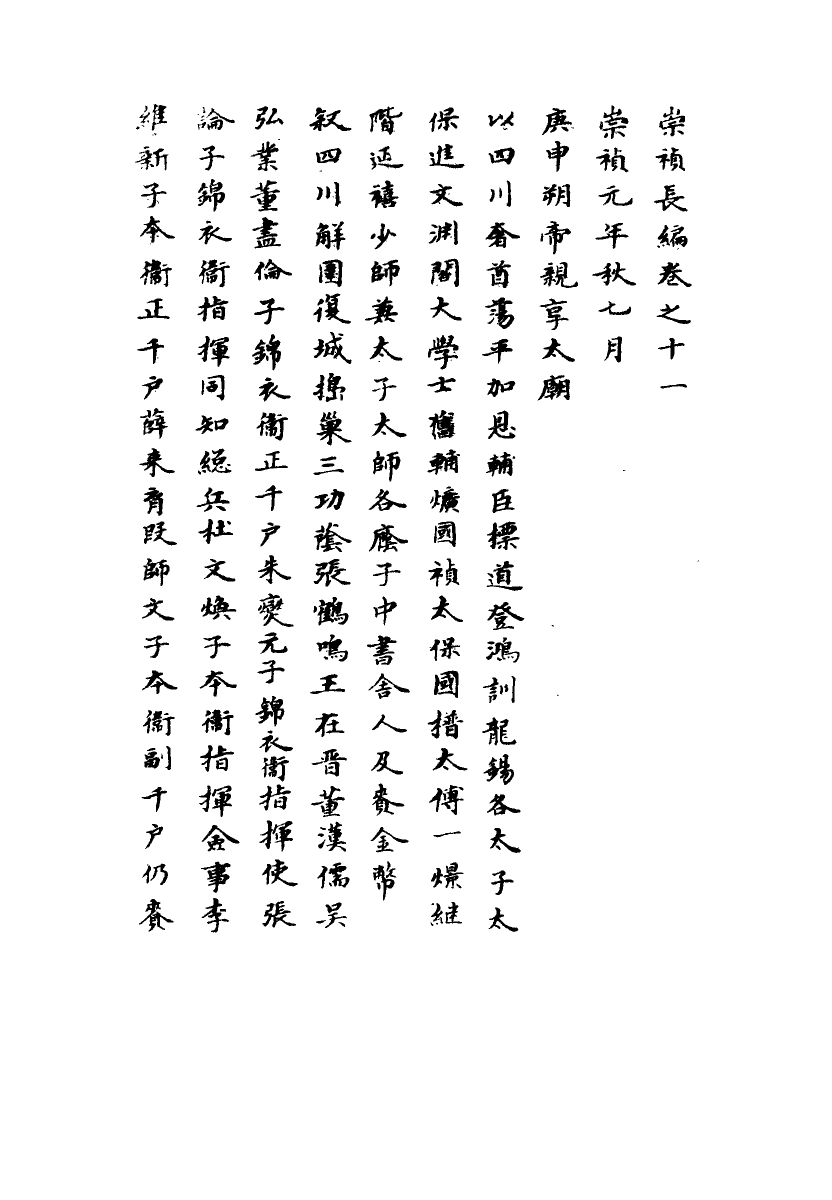 崇禎長編卷之十一
崇禎元年秋七月
庚申朔帝親享太廟
以四川奢酋蕩平加恩輔臣標道登鴻訓龍錫各太子太
保進文淵閣大學士舊輔爌國禎太保國𣚴太傅一燝継
階延禧少師兼太子太師各廕子中書舍人及賚金幣
叙四川解圍復城搗巢三功蔭張鶴鳴王在晋董漢儒吴
弘業董盡倫子錦衣衞正千户朱燮元子錦衣衞指揮使張
論子錦衣衞指揮同知縂兵杜文煥子本衞指揮僉事李
維新子本衞正千户薛来胥段師文子本衞副千户仍賚